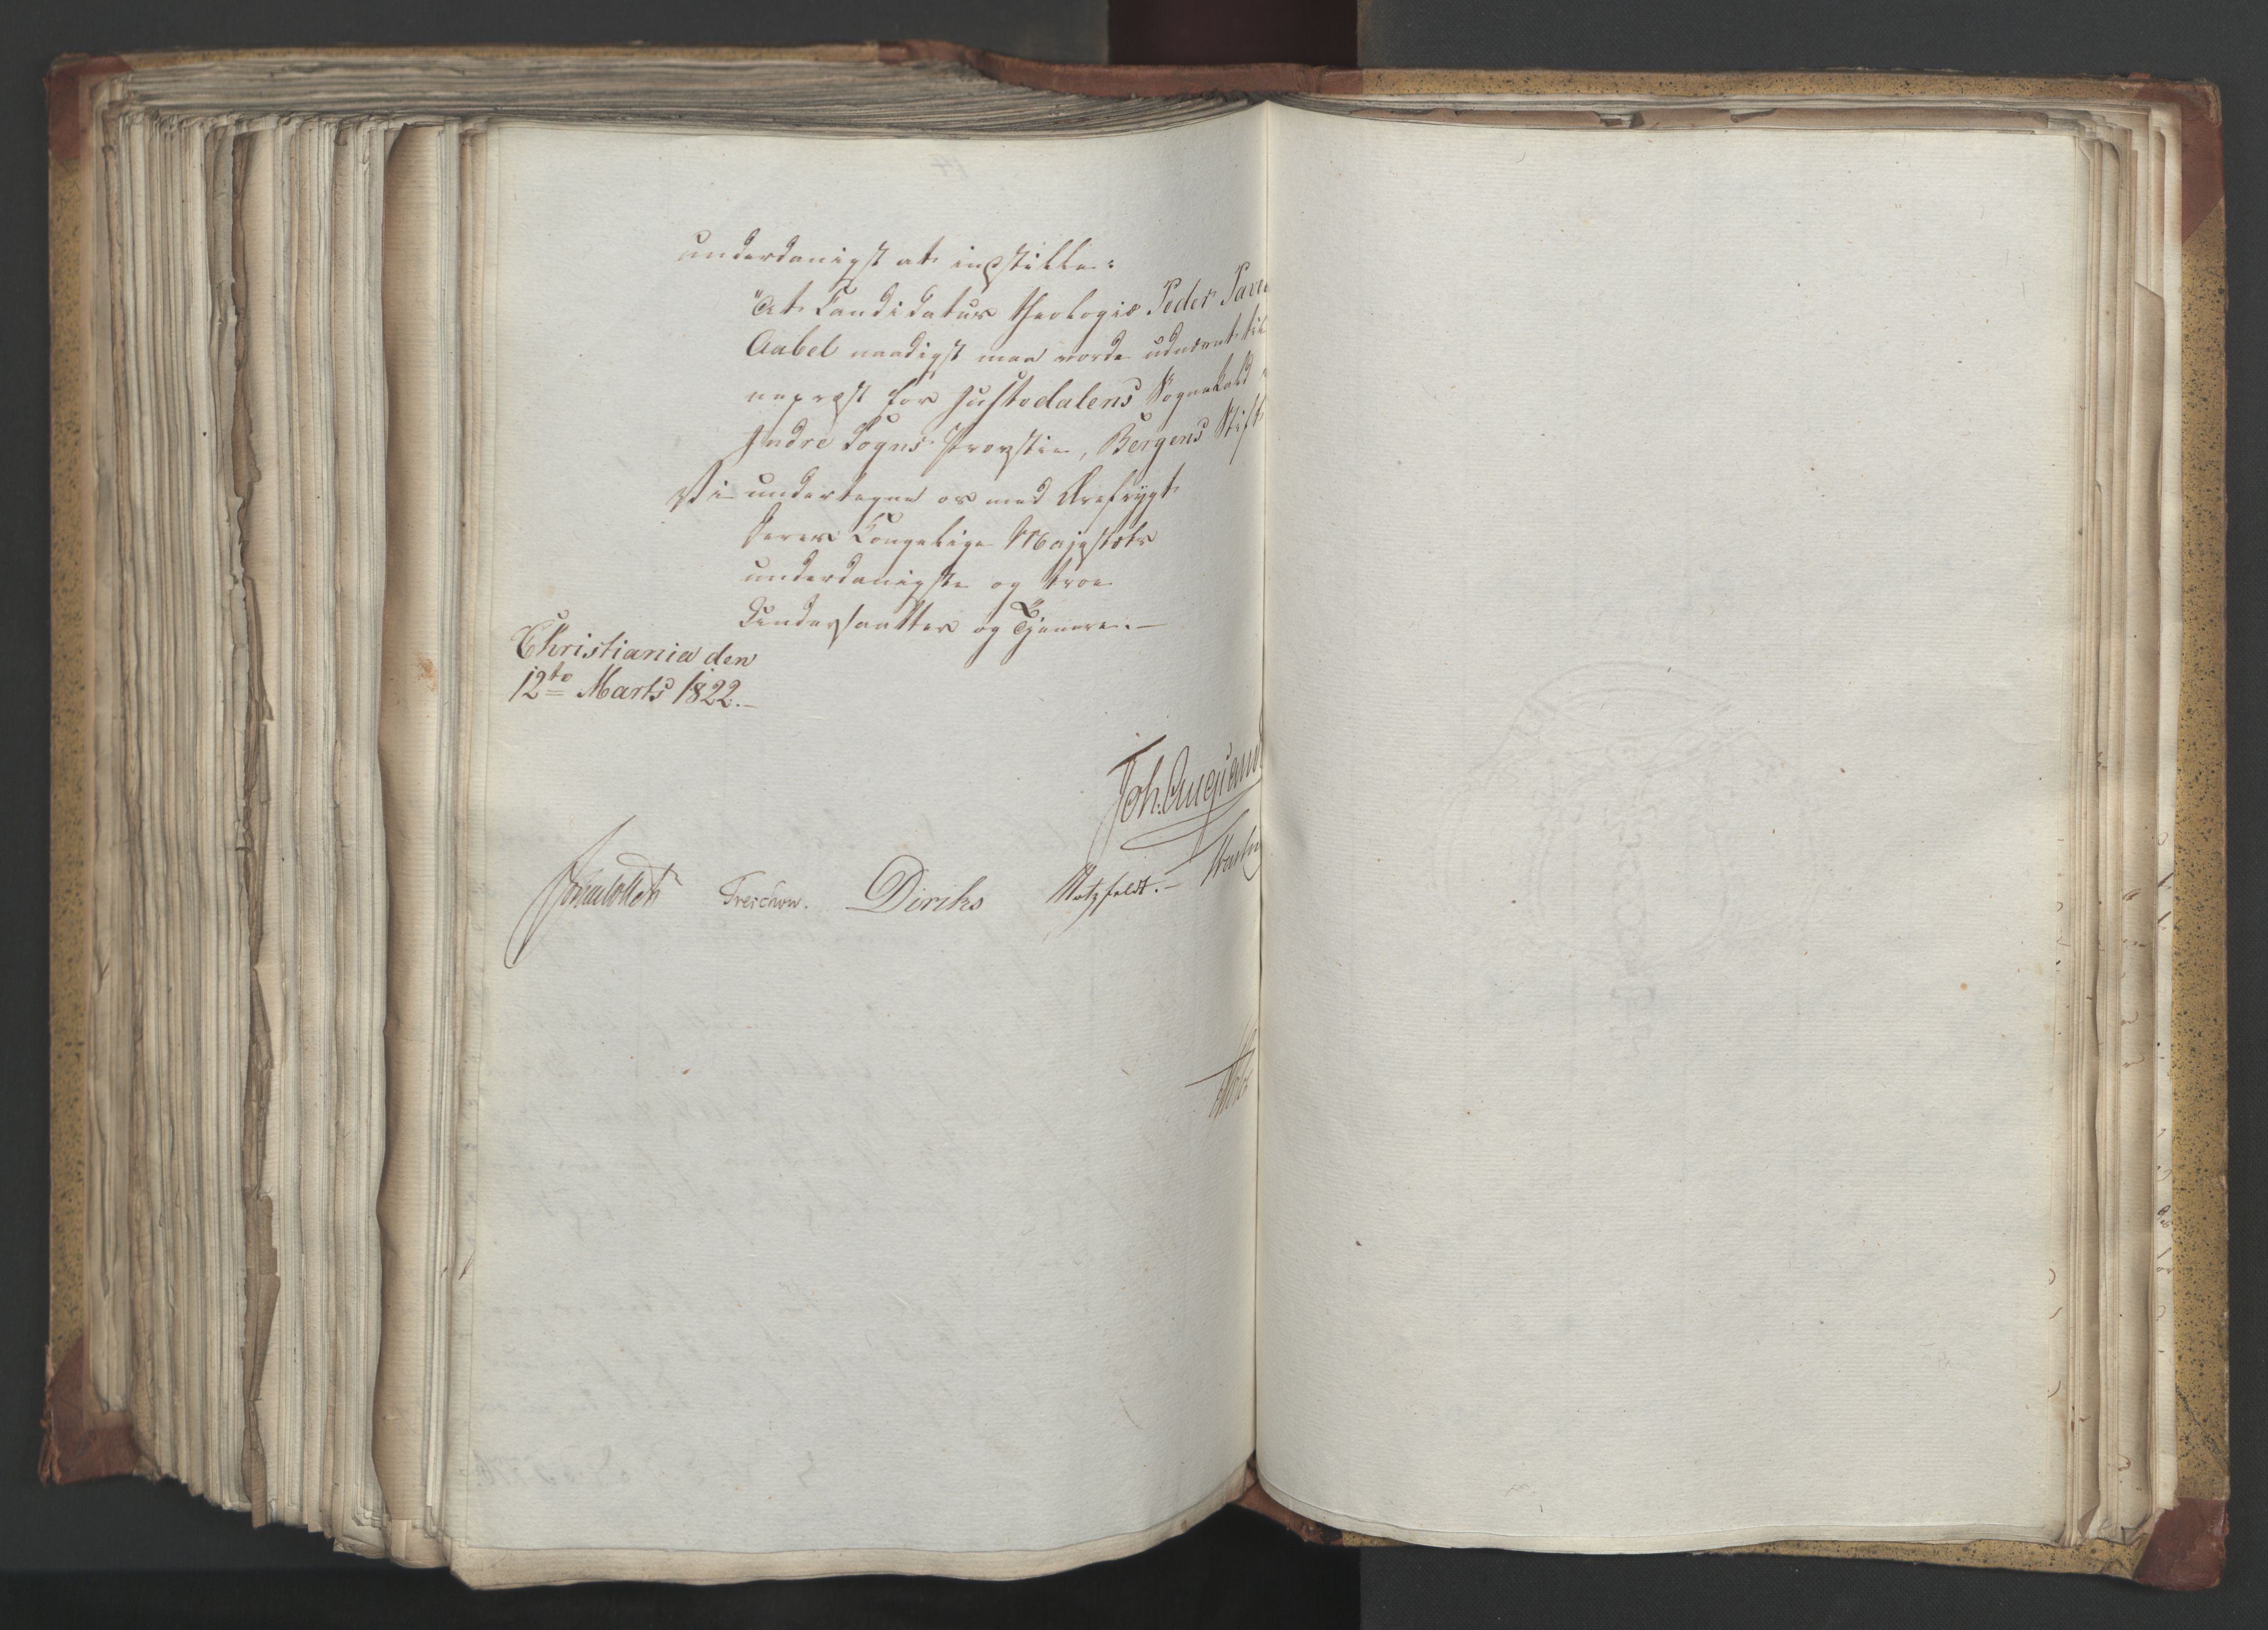 underdanigst at indstille:
"At Candidatus theologiæ Peder Pave
Aabel naadigst maa vorde udnævnt til
nepræst for Justedalens Sognekald
Indre Sogns Provstie, Bergens Stift
Vi undertegne os med Ærefrygt
Deres Kongelige Majestæts
underdanigste og troe
Undersaatter og Tjenere.—
Christiania den
12te Marts 1822.—
Joh. Aug: Sand
Sommerhielm Treschow. Diriks Motzfeldt.—